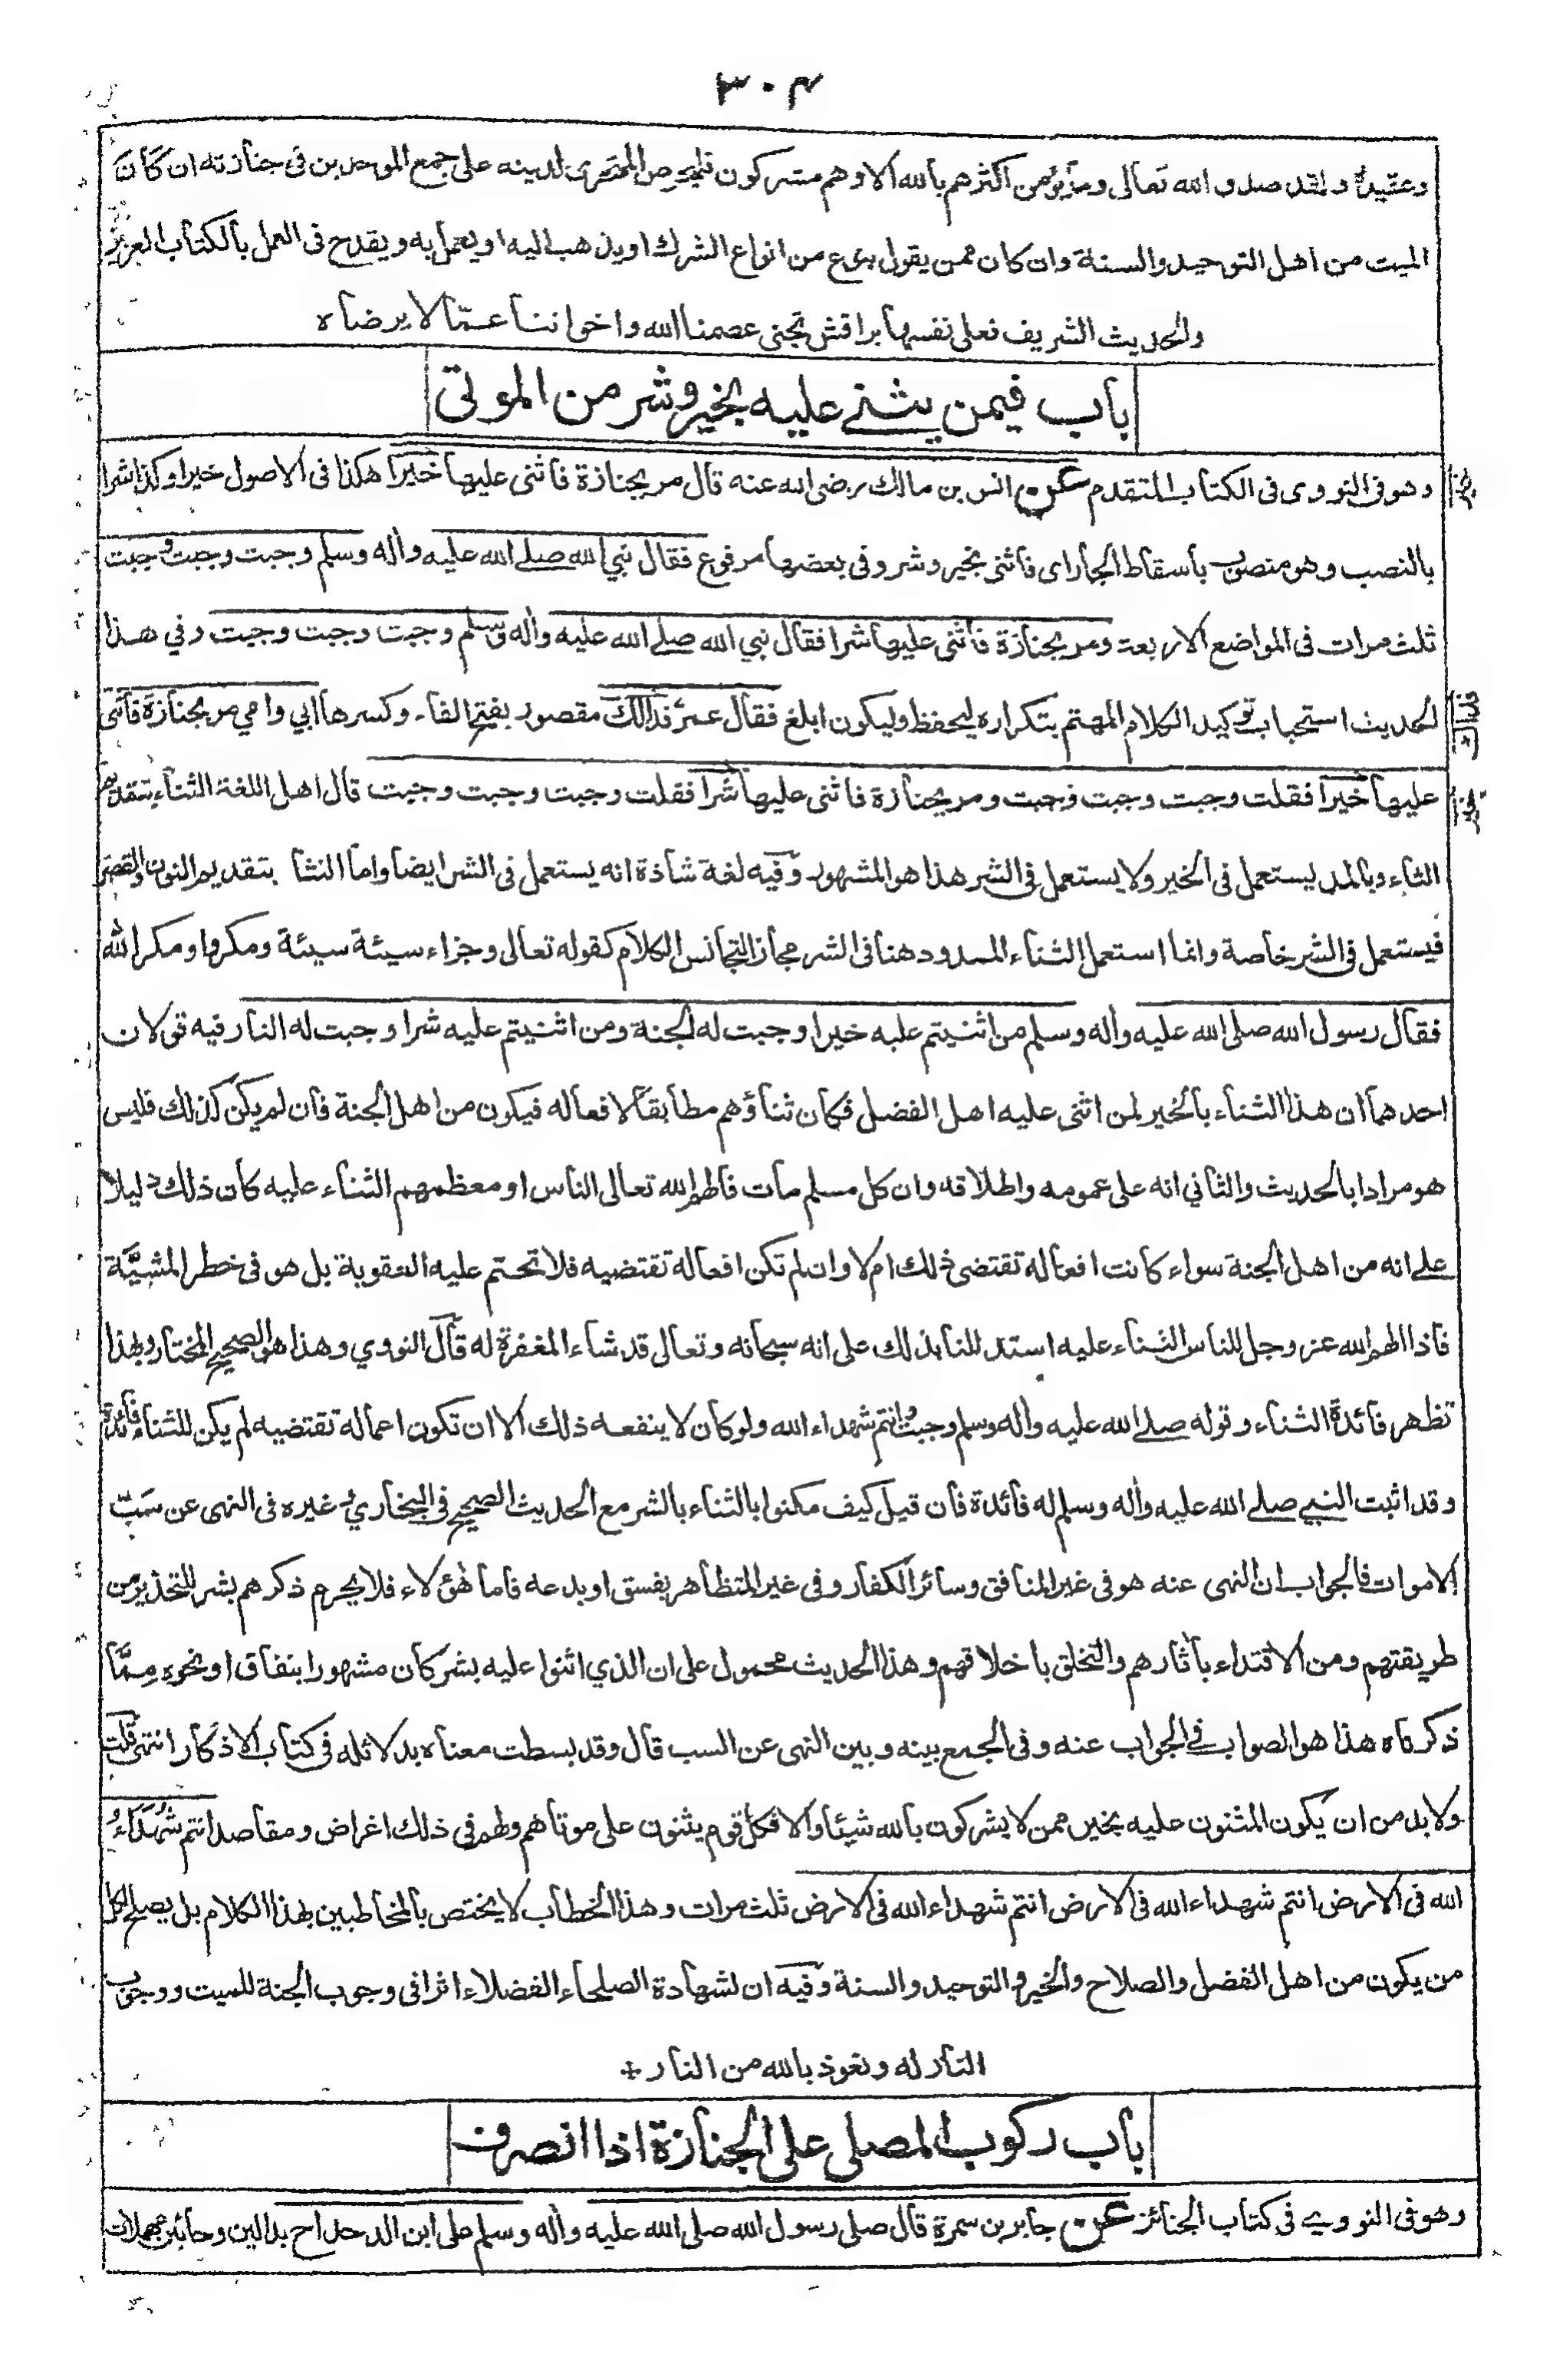 ٣٠٤
وعقيدة ولقد صدق الله تعالى وما يؤمن اكثرهم بالله الا وهم مشركون فليحرص المتحرى لدينه على جمع الموحدين فى جنازته ان كان
الميت من اهل التوحيد والسنة وان كان ممن يقول بنوع من انواع الشرك او يذهب اليه او يعمل به ويقدح فى العمل بالكتاب العزيز
والحديث الشريف فعلى نفسها براقش تجنى عصمنا الله واخواننا عمّا لا يرضاه
باب فيمن يثنى عليه بخير وشر من الموتى
وهو فى النووى فى الكتاب المتقدم عن انس بن مالك رضى الله عنه قال مر بجنازة فاثنى عليها خيرا هكذا فى الاصول خيرا وكذا شرا
بالنصب وهو منصوب باسقاط الجار اى فاثنى بخير وشر وفى بعضها مرفوع فقال نبي الله صلے الله عليه واله وسلم وجبت وجبت وجبت
ثلث مرات فى المواضع الاربعة ومر بجنازة فاثنى عليها شرا فقال نبي الله صلے الله عليه واله وسلم وجبت وجبت وجبت وفي هذا
الحديث استحباب توكيد الكلام المهتم بتكراره ليحفظ وليكون ابلغ فقال عمر فدالك مقصور بفتح الفاء وكسرها ابي وامي مر بجنازة فاثنى
عليها خيرا فقلت وجبت وجبت وجبت ومر بجنازة فاثنى عليها شرا فقلت وجبت وجبت وجبت قال اهل اللغة الثناء بتقديم
الثاء وبالمد يستعمل فى الخير ولا يستعمل فى الشر هذا هو المشهور وفيه لغة شاذة انه يستعمل فى الشر ايضا واما النثا بتقديم النون والقصر
فيستعمل فى الشر خاصة وانما استعمل الثناء الممدود هنا فى الشر مجازا لتجانس الكلام كقوله تعالى وجزاء سيئة سيئة ومكروا ومكر الله
فقال رسول الله صلى الله عليه واله وسلم من اثنيتم عليه خيرا وجبت له الجنة ومن اثنيتم عليه شرا وجبت له النار فيه قولان
احدهما ان هذا الثناء بالخير لمن اثنى عليه اهل الفضل فكان ثناؤهم مطابقا لافعاله فيكون من اهل الجنة فان لم يكن كذلك فليس
هو مرادا بالحديث والثاني انه على عمومه واطلاقه وان كل مسلم مات فالهم الله تعالى الناس او معظمهم الثناء عليه كان ذلك دليلا
علے انه من اهل الجنة سواء كانت افعاله تقتضى ذلك ام لا وان لم تكن افعاله تقتضيه فلا تحتم عليه العقوبة بل هو فى خطر المشيّة
فاذا الهم الله عز وجل للناس الثناء عليه استدللنا بذلك على انه سبحانه وتعالى قد شاء المغفرة له قال النووي وهذا هو الصحيح المختار وبهذا
تظهر فائدة الثناء وقوله صلے الله عليه واله وسلم وجبت وانتم شهداء الله ولو كان لا ينفعه ذلك الا ان تكون اعماله تقتضيه لم يكن للثناء فائدة
وقد اثبت النبي صلے الله عليه واله وسلم له فائدة فان قيل كيف مكنوا بالثناء بالشر مع الحديث الصحيح فى البخاري وغيره فى النهى عن سبّ
الاموات فالجواب ان النهى عنه هو فى غير المنافق وسائر الكفار وفى غير المتظاهر بفسق او بدعه فاما هؤلاء فلا يحرم ذكرهم بشر للتحذير من
طريقتهم ومن الاقتداء باثارهم والتخلق باخلاقهم وهذا الحديث محمول على ان الذي اثنوا عليه بشر كان مشهورا بنفاق او نحوه ممّا
ذكرناه هذا هو الصواب فى الجواب عنه وفى الجمع بينه وبين النهى عن السب قال وقد بسطت معناه بدلائله فى كتاب الاذكار انتهى قلت
ولا بد من ان يكون المثنون عليه بخير ممن لا يشركون بالله شيئا والا فكل قوم يثنون على موتاهم ولهم فى ذلك اغراض ومقاصد انتم شهداء
الله فى الارض انتم شهداء الله فى الارض انتم شهداء الله فى الارض ثلث مرات وهذا الخطاب لا يختص بالمخاطبين بهذا الكلام بل يصلح لكل
من يكون من اهل الفضل والصلاح والخير والتوحيد والسنة وفيه ان لشهادة الصلحاء الفضلاء اثرا فى وجوب الجنة للميت ووجوب
النار له ونعوذ بالله من النار +
باب ركوب المصلى على الجنازة اذا انصرف
وهو فى النووي فى كتاب الجنائز عن جابر بن سمرة قال صلى رسول الله صلى الله عليه واله وسلم على ابن الدحداح بدالين وحائين مهملات